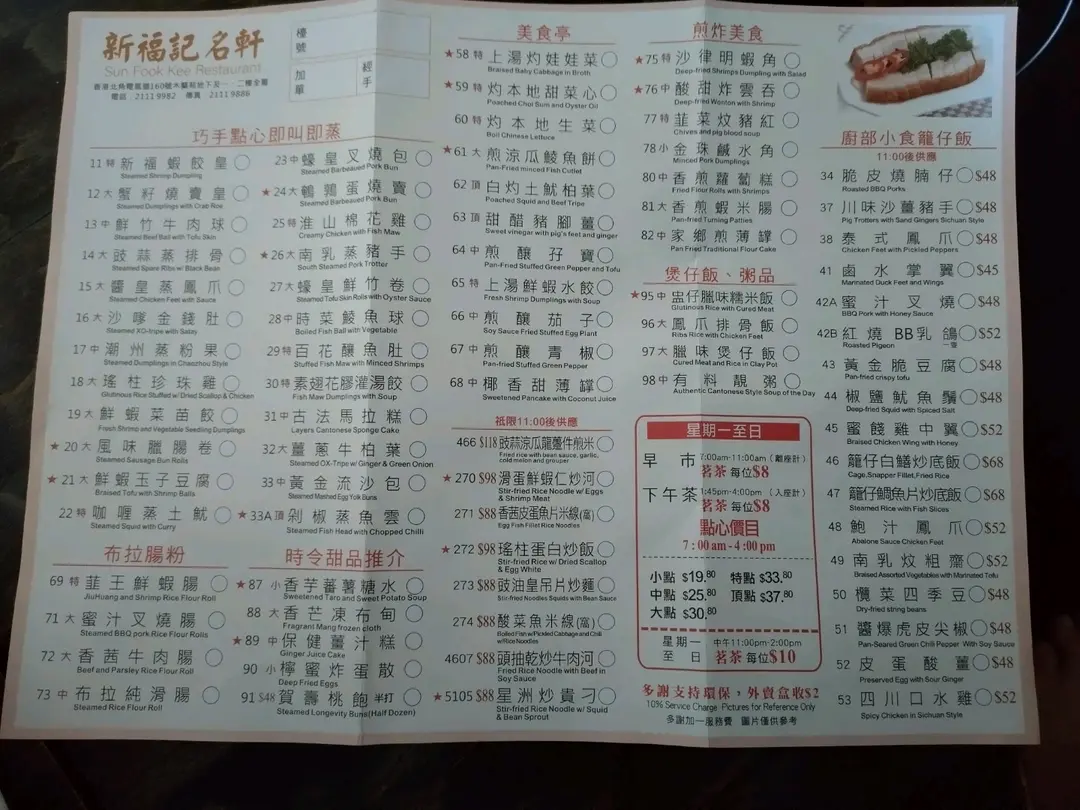 新福記名軒
Sun Fook Kee Restaurant
電話 2111 9982 傳真 2111 9886
檯號
加單
經手
巧手點心即叫即蒸
11 特 新福蝦餃皇
Steamed Shrimp Dumpling
12 大 蟹籽燒賣皇
Steamed Dumplings with Crab Roe
13 中 鮮竹牛肉球
Steamed Beef Ball with Tofu Skin
14 大 豉蒜蒸排骨
Steamed Spare Ribs w/ Black Bean
15 大 醬皇蒸鳳爪
Steamed Chicken Feet with Sauce
16 大 沙嗲金錢肚
Steamed XO-tripe with Satay
17 中 潮州蒸粉果
Steamed Dumplings in Chaozhou Style
18 大 瑤柱珍珠雞
Glutinous Rice Stuffed w/ Dried Scallop & Chicken
19 大 鮮蝦菜苗餃
Fresh Shrimp and Vegetable Seedling Dumplings
★20 大 風味臘腸卷
Steamed Sausage Bun Rolls
★21 大 鮮蝦玉子豆腐
Braised Tofu with Shrimp Balls
22 特 咖喱蒸土魷
Steamed Squid with Curry
23 中 蠔皇叉燒包
Steamed Barbeaued Pork Bun
★24 大 鵪鶉蛋燒賣
Steamed Barbeaued Pork Bun
25 特 淮山棉花雞
Creamy Chicken with Fish Maw
★26 大 南乳蒸豬手
South Steamed Pork Trotter
27 大 蠔皇鮮竹卷
Steamed Tofu Skin Rolls with Oyster Sauce
28 中 時菜鯪魚球
Boiled Fish Ball with Vegetable
29 特 百花釀魚肚
Stuffed Fish Maw with Minced Shrimps
30 特 素翅花膠灌湯餃
Fish Maw Dumplings with Soup
31 中 古法馬拉糕
Layers Cantonese Sponge Cake
32 大 薑蔥牛柏葉
Steamed OX-Tripe w/ Ginger & Green Onion
33 中 黃金流沙包
Steamed Mashed Egg Yolk Buns
★33A 頂 剁椒蒸魚雲
Steamed Fish Head with Chopped Chilli
布拉腸粉
69 特 韮王鮮蝦腸
JiuHuang and Shrimp Rice Flour Roll
71 大 蜜汁叉燒腸
Steamed BBQ pork Rice Flour Rolls
72 大 香茜牛肉腸
Beef and Parsley Rice Flour Roll
73 中 布拉純滑腸
Steamed Rice Flour Roll
時令甜品推介
★87 小 香芋蕃薯糖水
Sweetened Taro and Sweet Potato Soup
88 大 香芒凍布甸
Fragrant Mang frozen cloth
★89 中 保健薑汁糕
Ginger Juice Cake
90 小 檸蜜炸蛋散
Deep Fried Eggs
91 $48 賀壽桃飽 半打
Steamed Longevity Buns(Half Dozen)
美食亭
★58 特 上湯灼娃娃菜
Braised Baby Cabbage in Broth
★59 特 灼本地甜菜心
Poached Choi Sum and Oyster Oil
60 特 灼本地生菜
Boil Chinese Lettuce
★61 大 煎涼瓜鯪魚餅
Pan-fried minced Fish Cutlet
62 頂 白灼土魷柏葉
Poached Squid and Beef Tripe
63 頂 甜醋豬腳薑
Sweet vinegar with pig's feet and ginger
64 中 煎釀孖寶
Pan-Fried Stuffed Green Pepper and Tofu
65 特 上湯鮮蝦水餃
Fresh Shrimp Dumplings with Soup
66 中 煎釀茄子
Soy Sauce Fried Stuffed Egg Plant
67 中 煎釀青椒
Pan-Fried Stuffed Green Pepper
68 中 椰香甜薄罉
Sweetened Pancake with Coconut Juice
祗限11:00後供應
466 $118 豉蒜涼瓜龍躉件煎米
Fried rice with bean sauce, garlic, cold melon and grouper
★270 $98 滑蛋鮮蝦仁炒河
Stir-fried Rice Noodle w/ Eggs & Shrimp Meat
271 $88 香茜皮蛋魚片米線(窩)
Egg Fish Fillet Rice Noodles
★272 $98 瑤柱蛋白炒飯
Stir-fried Rice w/ Dried Scallop & Egg White
273 $88 豉油皇吊片炒麵
Stir-fried Noodles Squids with Bean Sauce
274 $88 酸菜魚米線(窩)
Boiled Fish w/Pickled Cabbage and Chili w/Rice Noodles
4607 $88 頭抽乾炒牛肉河
Fried Rice Noodle with Beef in Soy Sauce
★5105 $88 星洲炒貴刁
Stir-fried Rice Noodle w/ Squid & Bean Sprout
煎炸美食
★75 特 沙律明蝦角
Deep-fried Shrimps Dumpling with Salad
★76 中 酸甜炸雲吞
Deep-fried Wonton with Shrimp
77 特 韮菜炆豬紅
Chives and pig blood soup
78 小 金珠鹹水角
Minced Pork Dumplings
80 中 香煎蘿蔔糕
Fried Flour Rolls with Shrimps
81 大 香煎蝦米腸
Pan-fried Turning Patties
82 中 家鄉煎薄罉
Pan Fried Traditional Flour Cake
煲仔飯、粥品
★95 中 盅仔臘味糯米飯
Glutinous Rice with Cured Meat
96 大 鳳爪排骨飯
Ribs Rice with Chicken Feet
97 大 臘味煲仔飯
Cured Meat and Rice in Clay Pot
98 中 有料靚粥
Authentic Cantonese Style Soup of the Day
星期一至日
早市 7:00am-11:00am (離座計)
茗茶 每位$8
下午茶 1:45pm-4:00pm (入座計)
茗茶 每位$8
點心價目
7:00 am - 4:00 pm
小點 $19.80 特點 $33.80
中點 $25.80 頂點 $37.80
大點 $30.80
星期一至日 中午11:00pm-2:00pm
茗茶 每位$10
多謝支持環保，外賣盒收$2
10% Service Charge Pictures for Reference Only
多謝加一服務費 圖片僅供參考
廚部小食籠仔飯
11:00後供應
34 脆皮燒腩仔 $48
Roasted BBQ Porks
37 川味沙薑豬手 $48
Pig Trotters with Sand Gingers Sichuan Style
38 泰式鳳爪 $48
Chicken Feet with Pickled Peppers
41 鹵水掌翼 $45
Marinated Duck Feet and Wings
42A 蜜汁叉燒 $48
BBQ Pork with Honey Sauce
42B 紅燒BB乳鴿 一隻 $52
Roasted Pigeon
43 黃金脆豆腐 $48
Pan-fried crispy tofu
44 椒鹽魷魚鬚 $48
Deep-fried Squid with Spiced Salt
45 蜜餞雞中翼 $52
Braised Chicken Wing with Honey
46 籠仔白鱔炒底飯 $68
Cage,Snapper Fillet,Fried Rice
47 籠仔鯛魚片炒底飯 $68
Steamed Rice with Fish Slices
48 鮑汁鳳爪 $52
Abalone Sauce Chicken Feet
49 南乳炆粗齋 $52
Braised Assorted Vegetables with Marinated Tofu
50 欖菜四季豆 $48
Dry-fried string beans
51 醬爆虎皮尖椒 $48
Pan-Seared Green Chili Pepper With Soy Sauce
52 皮蛋酸薑 $48
Preserved Egg with Sour Ginger
53 四川口水雞 $52
Spicy Chicken in Sichuan Style